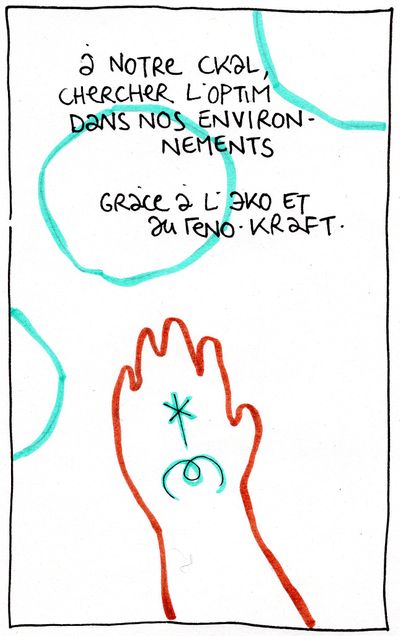 à NOTRE CKAL,
CHERCHER L'OPTIM
DANS NOS ENVIRON-
NEMENTS
GRÂCE à L'ƏKO ET
au FENO-KRAFT.